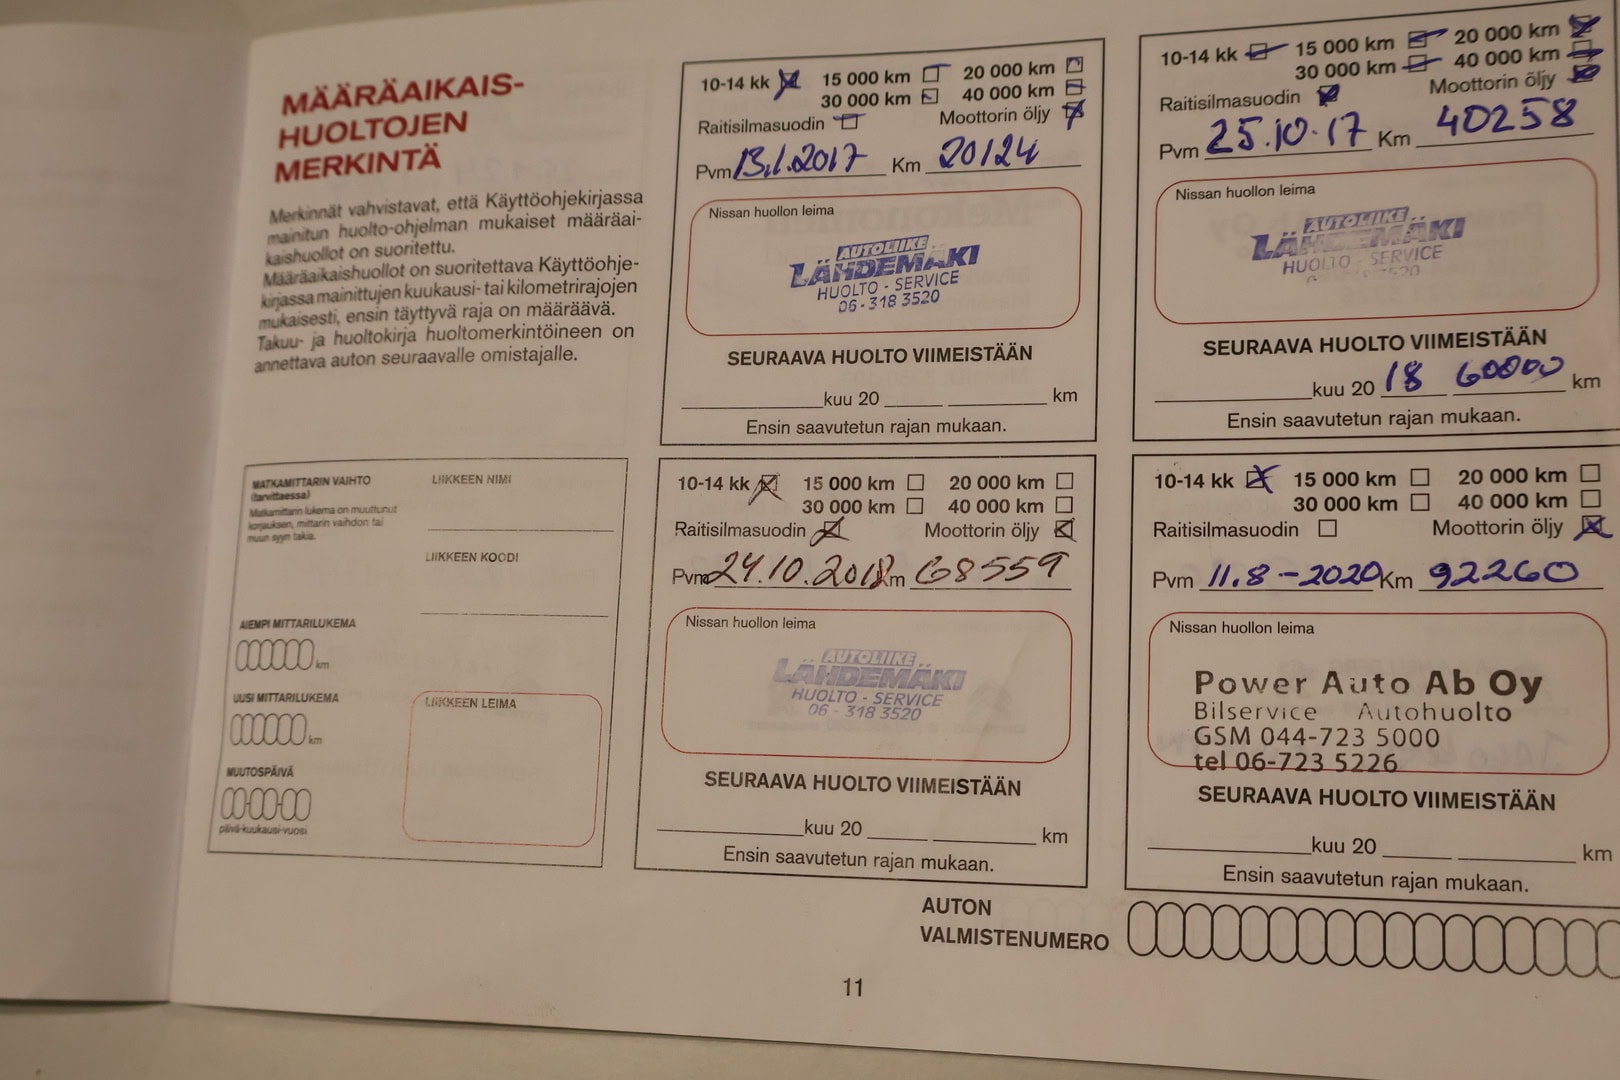 MÄÄRÄAIKAIS-
HUOLTOJEN
MERKINTÄ
Merkinnät vahvistavat, että Käyttöohjekirjassa
mainitun huolto-ohjelman mukaiset määräai-
kaishuollot on suoritettu.
Määräaikaishuollot on suoritettava Käyttöohje-
kirjassa mainittujen kuukausi- tai kilometrirajojen
mukaisesti, ensin täyttyvä raja on määräävä.
Takuu- ja huoltokirja huoltomerkintöineen on
annettava auton seuraavalle omistajalle.
10-14 kk 15 000 km 20 000 km
30 000 km 40 000 km
Raitisilmasuodin Moottorin öljy
Pvm 13.1.2017 Km 20124
Nissan huollon leima
AUTOLIIKE
LÄHDEMÄKI
HUOLTO - SERVICE
06 - 318 3520
SEURAAVA HUOLTO VIIMEISTÄÄN
kuu 20 km
Ensin saavutetun rajan mukaan.
10-14 kk 15 000 km 20 000 km
30 000 km 40 000 km
Raitisilmasuodin Moottorin öljy
Pvm 25.10.17 Km 40258
Nissan huollon leima
AUTOLIIKE
LÄHDEMÄKI
HUOLTO - SERVICE
3520
SEURAAVA HUOLTO VIIMEISTÄÄN
kuu 20 18 60000 km
Ensin saavutetun rajan mukaan.
MATKAMITTARIN VAIHTO
(tarvittaessa)
Matkamittarin lukema on muuttunut
korjauksen, mittarin vaihdon tai
muun syyn takia.
LIIKKEEN NIMI
LIIKKEEN KOODI
AIEMPI MITTARILUKEMA
km
UUSI MITTARILUKEMA
km
MUUTOSPÄIVÄ
päivä-kuukausi-vuosi
LIIKKEEN LEIMA
10-14 kk 15 000 km 20 000 km
30 000 km 40 000 km
Raitisilmasuodin Moottorin öljy
Pvm 24.10.2018 Km 68559
Nissan huollon leima
AUTOLIIKE
LÄHDEMÄKI
HUOLTO - SERVICE
06 - 318 3520
SEURAAVA HUOLTO VIIMEISTÄÄN
kuu 20 km
Ensin saavutetun rajan mukaan.
10-14 kk 15 000 km 20 000 km
30 000 km 40 000 km
Raitisilmasuodin Moottorin öljy
Pvm 11.8-2020 Km 92260
Nissan huollon leima
Power Auto Ab Oy
Bilservice Autohuolto
GSM 044-723 5000
tel 06-723 5226
SEURAAVA HUOLTO VIIMEISTÄÄN
kuu 20 km
Ensin saavutetun rajan mukaan.
AUTON
VALMISTENUMERO
11